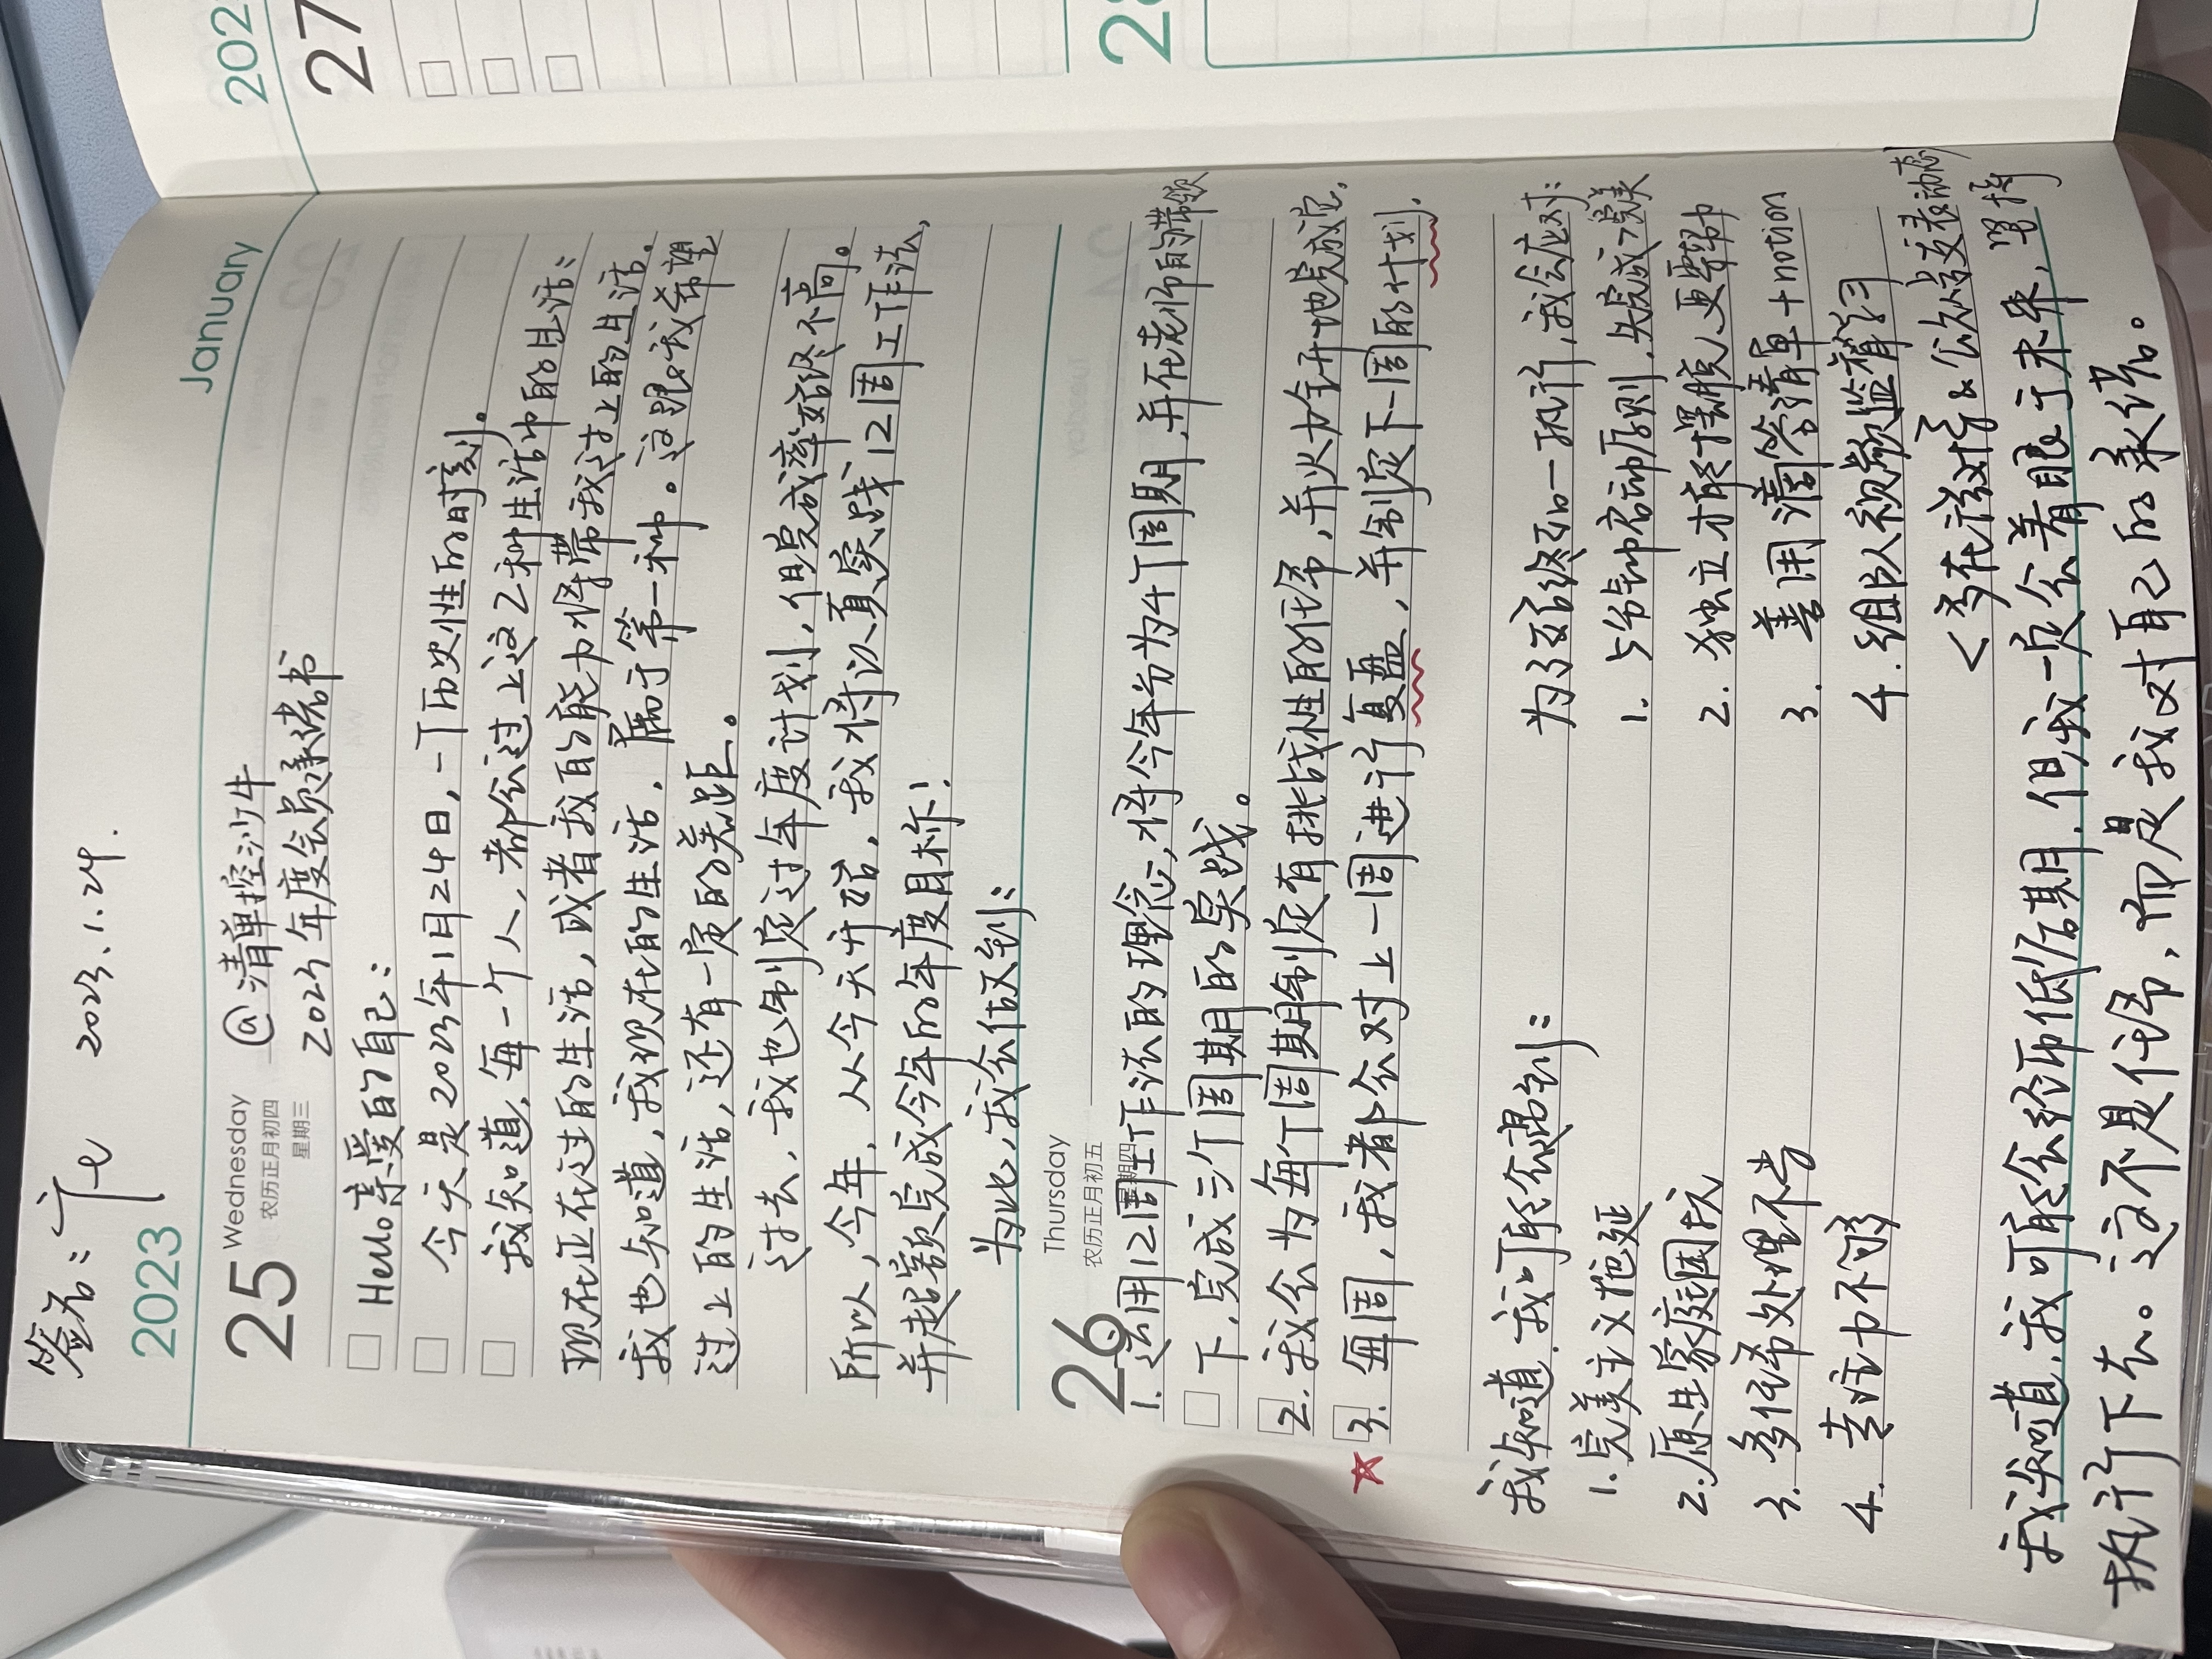 签名：
2023.1.24.
2023
January
25
Wednesday
农历正月初四
星期三
@清单控沙牛
2023年度会员承诺书
Hello 亲爱的自己：
今天是2023年1月24日，一个历史性的时刻。
我知道，每一个人，都会过上这2种生活中的生活：
现在正在过的生活，或者我的能力将带我过上的生活。
我也知道，我现在的生活，属于第一种。这跟我希望
过上的生活，还有一定的差距。
过去，我也制定过年度计划，但完成率始终不高。
所以，今年，从今天开始，我将认真实践12周工作法，
并超额完成今年的年度目标！
为此，我会做到：
26
Thursday
农历正月初五
星期四
1. 运用12周工作法的理念，将今年分为4个周期，并在老师的带领
下，完成三个周期的实战。
2. 我会为每个周期制定有挑战性的任务，并火力全开地完成它。
3. 每周，我都会对上一周进行复盘，并制定下一周的计划。
我知道，我可能会遇到：
1. 完美主义拖延
2. 原生家庭困扰
3. 多任务处理不当
4. 专注力不够
为了始终如一执行，我会应对：
1. 5分钟启动原则，先完成>完美
2. 独立才能摆脱，更帮助
3. 善用滴答清单+notion
4. 组队视频监督学习
<多在群&公众号发表动态
我知道，我可能会经历低估期，但我一定会着眼于未来，坚持
执行下去。这不是任务，而是我对自己的承诺。
202
27
28